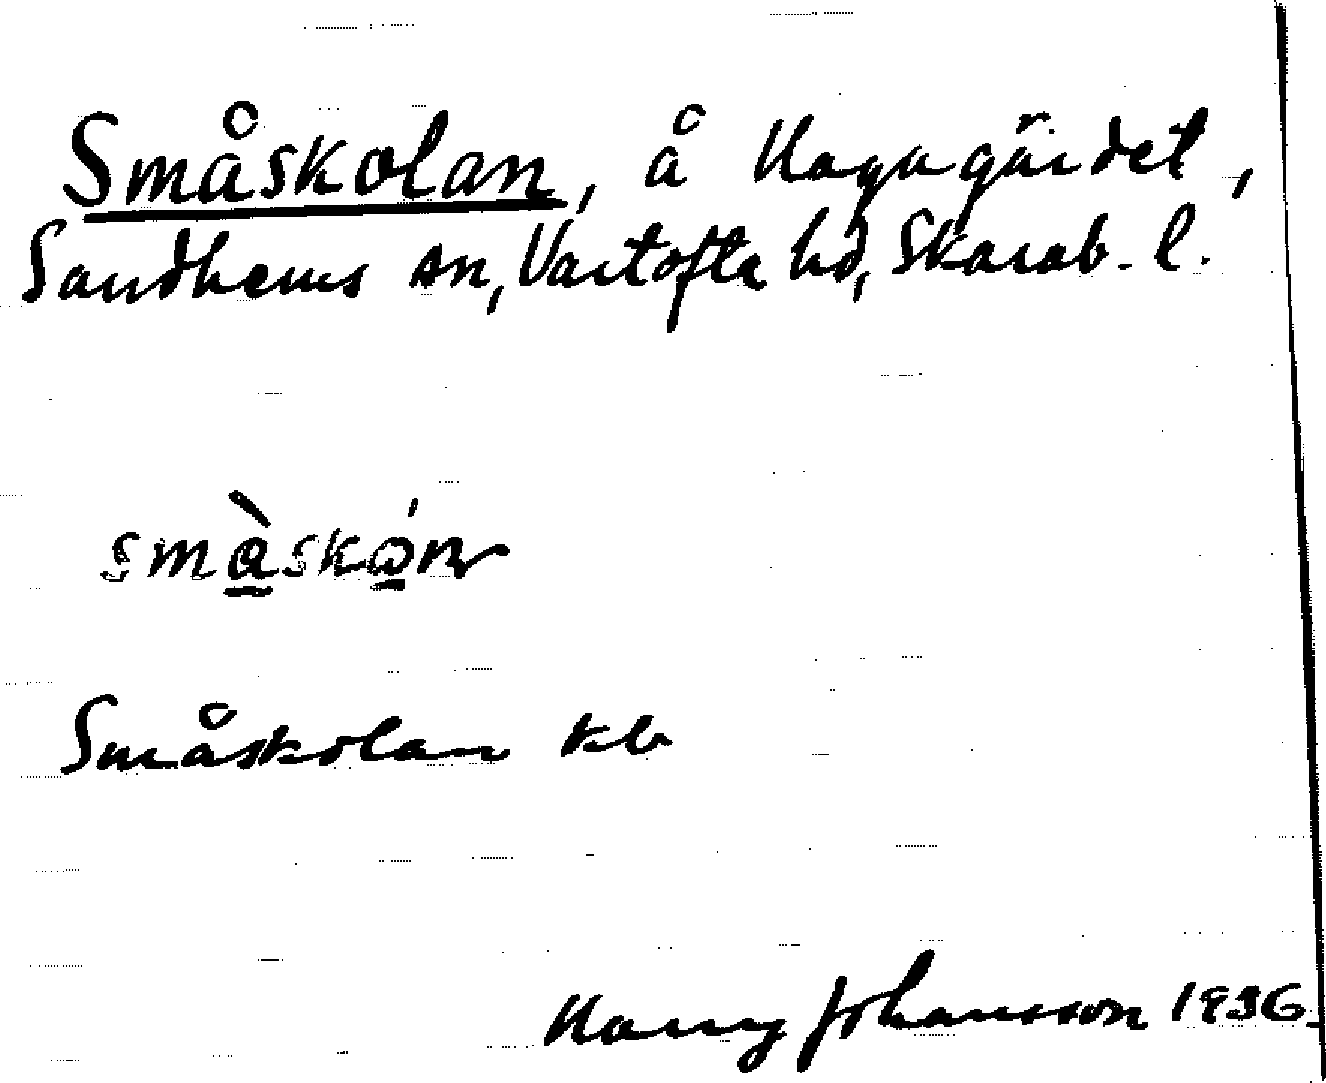 Småskolan, å Hagagärdet,
Sandhems sn, Vartofta hd, Skarab. l.
små̀skó̱n
Småskolan kb
Harry Johansson 1936.